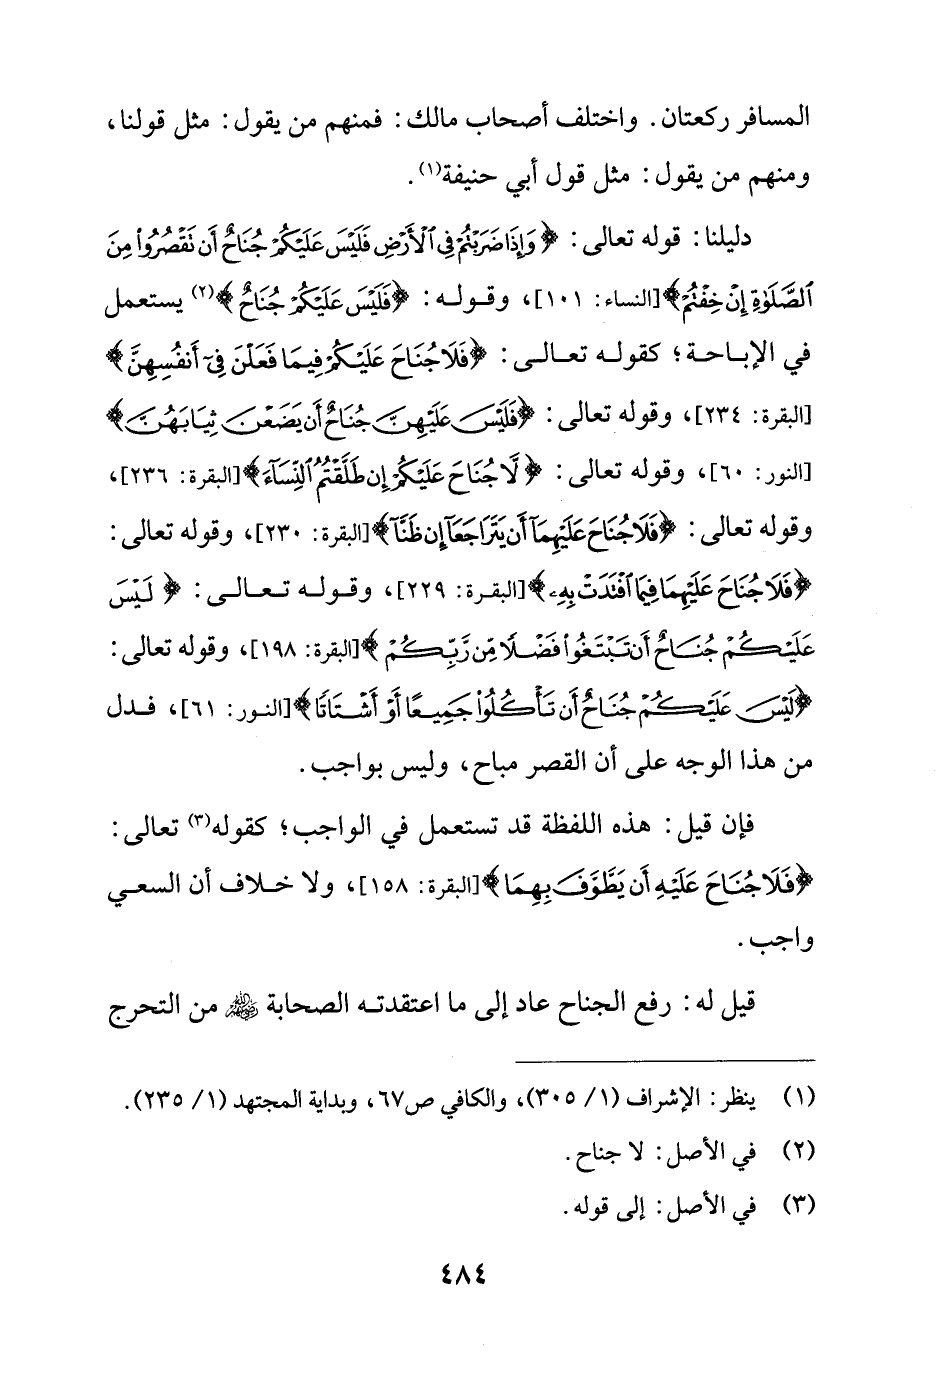 المسافر ركعتان. واختلف أصحاب مالك: فمنهم من يقول: مثل قولنا،
ومنهم من يقول: مثل قول أبي حنيفة(١).
دليلنا: قوله تعالى: ﴿وَإِذَا ضَرَبْتُمْ فِي ٱلْأَرْضِ فَلَيْسَ عَلَيْكُمْ جُنَاحٌ أَن تَقْصُرُوا۟ مِنَ
ٱلصَّلَوٰةِ إِنْ خِفْتُمْ﴾[النساء: ١٠١]، وقوله: ﴿فَلَيْسَ عَلَيْكُمْ جُنَاحٌ﴾(٢) يستعمل
في الإباحة؛ كقوله تعالى: ﴿فَلَا جُنَاحَ عَلَيْكُمْ فِيمَا فَعَلْنَ فِىٓ أَنفُسِهِنَّ﴾
[البقرة: ٢٣٤]، وقوله تعالى: ﴿فَلَيْسَ عَلَيْهِنَّ جُنَاحٌ أَن يَضَعْنَ ثِيَابَهُنَّ﴾
[النور: ٦٠]، وقوله تعالى: ﴿لَّا جُنَاحَ عَلَيْكُمْ إِن طَلَّقْتُمُ ٱلنِّسَآءَ﴾[البقرة: ٢٣٦]،
وقوله تعالى: ﴿فَلَا جُنَاحَ عَلَيْهِمَآ أَن يَتَرَاجَعَآ إِن ظَنَّآ﴾[البقرة: ٢٣٠]، وقوله تعالى:
﴿فَلَا جُنَاحَ عَلَيْهِمَا فِيمَا ٱفْتَدَتْ بِهِۦ﴾[البقرة: ٢٢٩]، وقوله تعالى: ﴿لَيْسَ
عَلَيْكُمْ جُنَاحٌ أَن تَبْتَغُوا۟ فَضْلًا مِّن رَّبِّكُمْ﴾[البقرة: ١٩٨]، وقوله تعالى:
﴿لَيْسَ عَلَيْكُمْ جُنَاحٌ أَن تَأْكُلُوا۟ جَمِيعًا أَوْ أَشْتَاتًا﴾[النور: ٦١]، فدل
من هذا الوجه على أن القصر مباح، وليس بواجب.
فإن قيل: هذه اللفظة قد تستعمل في الواجب؛ كقوله(٣) تعالى:
﴿فَلَا جُنَاحَ عَلَيْهِ أَن يَطَّوَّفَ بِهِمَا﴾[البقرة: ١٥٨]، ولا خلاف أن السعي
واجب.
قيل له: رفع الجناح عاد إلى ما اعتقدته الصحابة ﷺ من التحرج
(١) ينظر: الإشراف (١/ ٣٠٥)، والكافي ص٦٧، وبداية المجتهد (١/ ٢٣٥).
(٢) في الأصل: لا جناح.
(٣) في الأصل: إلى قوله.
٤٨٤